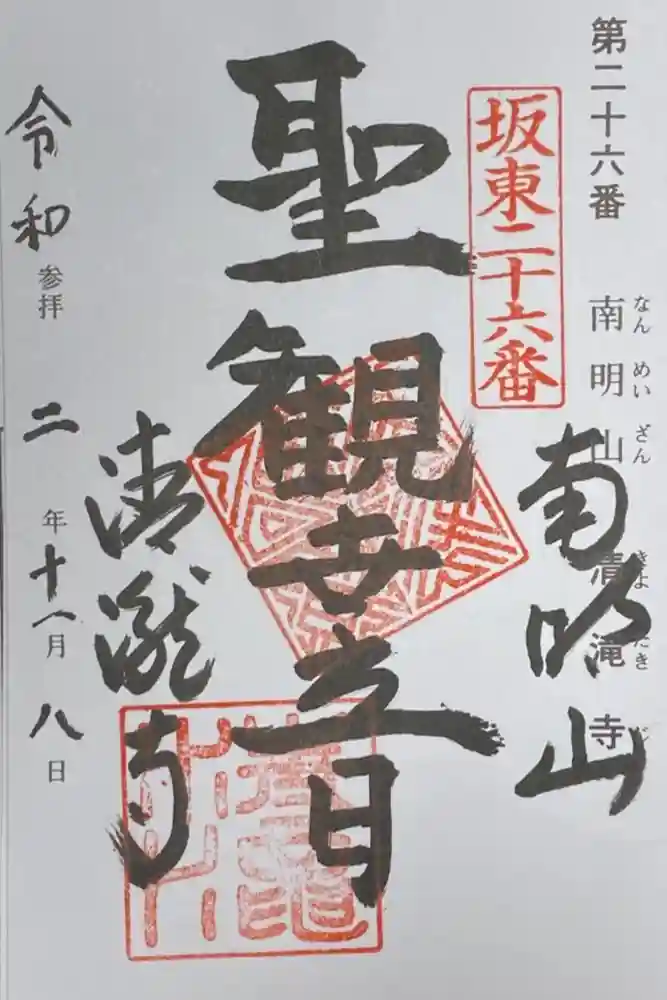 第二十六番 南明山 清滝寺
なん めい ざん きよ たき じ
坂東二十六番
南明山
聖観世音
清瀧寺
令和二年十一月八日
参拝